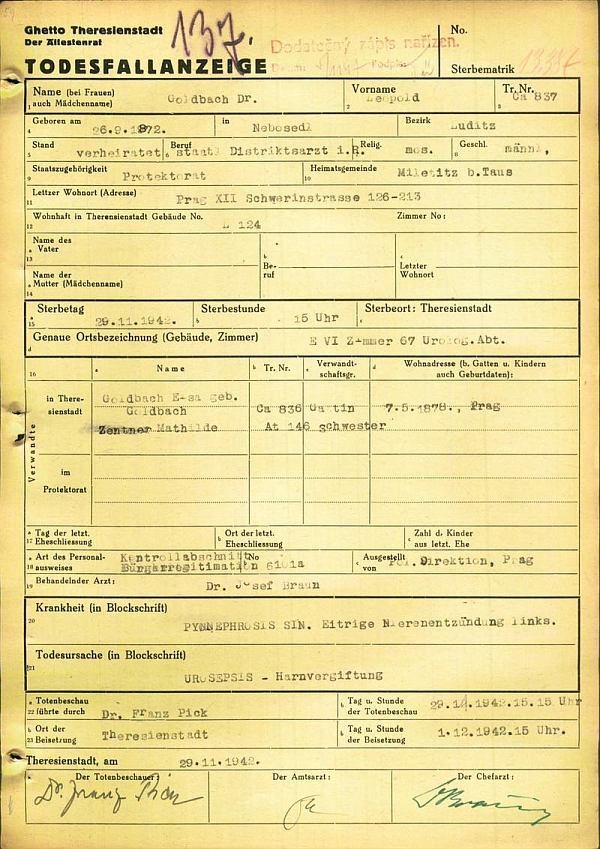 Ghetto Theresienstadt
Der Ältestenrat
TODESFALLANZEIGE
137.
Dodatečný zápis nařízen.
No.
Sterbematrik
Name (bei Frauen) auch Mädchenname) Goldbach Dr. Vorname Leopold Tr. Nr. Ca 837
Geboren am 26.9.1872. in Nebosedl Bezirk Luditz
Stand verheiratet Beruf staatl Distriktsarzt i.R. Relig. mos. Geschl. männl,
Staatszugehörigkeit Protektorat Heimatsgemeinde Miletitz b.Taus
Letzer Wohnort (Adresse) Prag XII Schwerinstrasse 126-213
Wohnhaft in Theresienstadt Gebäude No. L 124 Zimmer No:
Name des Vater Beruf Letzter Wohnort
Name der Mutter (Mädchenname)
Sterbetag 29.11.1942. Sterbestunde 15 Uhr Sterbeort: Theresienstadt
Genaue Ortsbezeichnung (Gebäude, Zimmer) E VI Zimmer 67 Urolog.Abt.
Name Tr. Nr. Verwandtschaftsgr. Wohnadresse (b. Gatten u. Kindern auch Geburtdaten):
Verwandte
in Theresienstadt
Goldbach Elsa geb.
Goldbach Ca 836 Gattin 7.5.1878., Prag
Zentner Mathilde At 146 Schwester
im Protektorat
Tag der letzt. Eheschliessung Ort der letzt. Eheschliessung Zahl d. Kinder aus letzt. Ehe
Art des Personalausweises Kontrollabschnitt Bürgerlegitimation No 6101a Ausgestellt von Pol. Direktion, Prag
Behandelnder Arzt: Dr. Josef Braun
Krankheit (in Blockschrift)
PYNNEPHROSIS SIN. Eitrige Nierenentzündung links.
Todesursache (in Blockschrift)
UROSEPSIS - Harnvergiftung
Totenbeschau führte durch Dr. Franz Pick Tag u. Stunde der Totenbeschau 29.11.1942.15.15 Uhr
Ort der Beisetzung Theresienstadt Tag u. Stunde der Beisetzung 1.12.1942.15 Uhr.
Theresienstadt, am 29.11.1942.
Der Totenbeschauer: Der Amtsarzt: Der Chefarzt:
Dr. Franz Pick